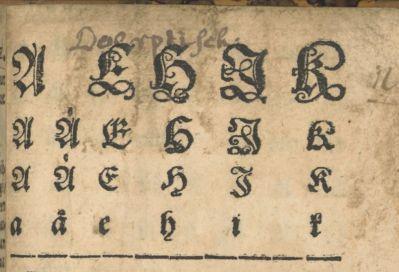 Doerptisch.
A E H I K
A Å E H I K
A Å E H I K
a å e h i k